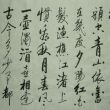 頭空青山依舊
在幾度夕陽紅白
髮漁樵江渚上
慣看秋月春風一
壺濁酒喜相逢
古今多少事都